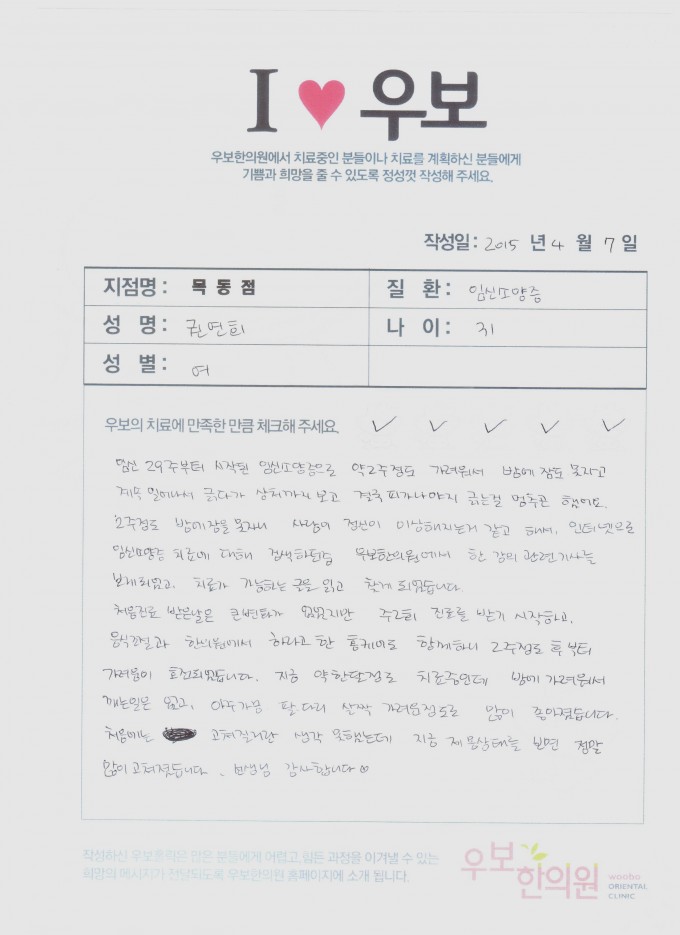 I ♥ 우보
우보한의원에서 치료중인 분들이나 치료를 계획하신 분들에게
기쁨과 희망을 줄 수 있도록 정성껏 작성해 주세요.
작성일: 2015 년 4 월 7 일
지점명: 목동점 질 환: 임신소양증
성 명: 권연희 나 이: 31
성 별: 여
우보의 치료에 만족한 만큼 체크해 주세요. ✓ ✓ ✓ ✓ ✓
임신 29주부터 시작된 임신소양증으로 약2주정도 가려워서 밤에 잠도 못자고
계속 일어나서 긁다가 상처까지 보고 결국 피가나야지 긁는걸 멈추곤 했어요.
2주정도 밤에잠을 못자니 사람이 정신이 이상해지는거 같고 해서, 인터넷으로
임신소양증 치료에 대해 검색하던중 우보한의원에서 한 강의 관련기사를
보게되었고, 치료가 가능하는 글을 읽고 찾게 되었습니다.
처음진료 받은날은 큰변화가 없었지만 주2회 진료를 받기 시작하고,
음식조절과 한의원에서 하라고 한 홈케어도 함께하니 2주정도 후부터
가려움이 호전되었습니다. 지금 약한달정도 치료중인데 밤에 가려워서
깨는일은 없고, 아주가끔 팔.다리 살짝 가려운정도로 많이 좋아졌습니다.
처음에는 고쳐질거란 생각 못했는데 지금 제 몸상태를 보면 정말
많이 고쳐졌습니다. 선생님 감사합니다♡
작성하신 우보홀릭은 많은 분들에게 어렵고, 힘든 과정을 이겨낼 수 있는
희망의 메시지가 전달되도록 우보한의원 홈페이지에 소개 됩니다.
우보한의원
woobo
ORIENTAL
CLINIC